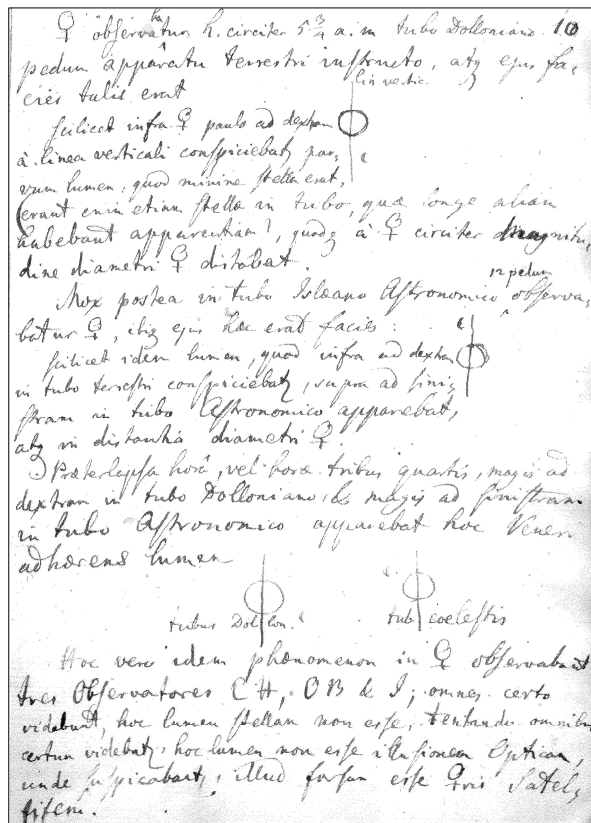 ♀ observatur h. circiter 5 3/4 a. m tubo Dolloniano 10
pedum apparatu terrestri instructo, atq ejus fa,
cies talis erat
lin vertic.
scilicet infra ♀ paulo ad dextram
à linea verticali conspiciebatz par,
vum lumen, quod minime stella erat,
(erant enim etiam stellæ in tubo, quæ longe aliam
habebant apparentiam), quodq à ♀ circiter magnitu,
dine diametri ♀ distabat.
12 pedum
Mox postea in tubo Islæano Astronomico observa,
batur ♀, ibiq ejus hæc erat facies:
scilicet idem lumen, quod infra ad dextram
in tubo terrestri conspiciebatz, supra ad sini,
stram in tubo Astronomico apparebat,
atq in distantia diametri ♀.
Præterlapsa horâ, vel horæ tribus quartis, magis ad
dextram in tubo Dolloniano, & magis ad sinistram
in tubo Astronomico apparebat hoc Veneri
adhærens lumen
tubus Dollon. tub coelestis
Hoc vero idem phænomenon in ♀ observabant
tres Observatores C H, O B & I; omnes certo
videbant, hoc lumen stellam non esse, tentando omnibus
certum videbatz, hoc lumen non esse illusionem Opticam,
unde suspicabantz, illud forsan esse ♀ris Satel,
litem.